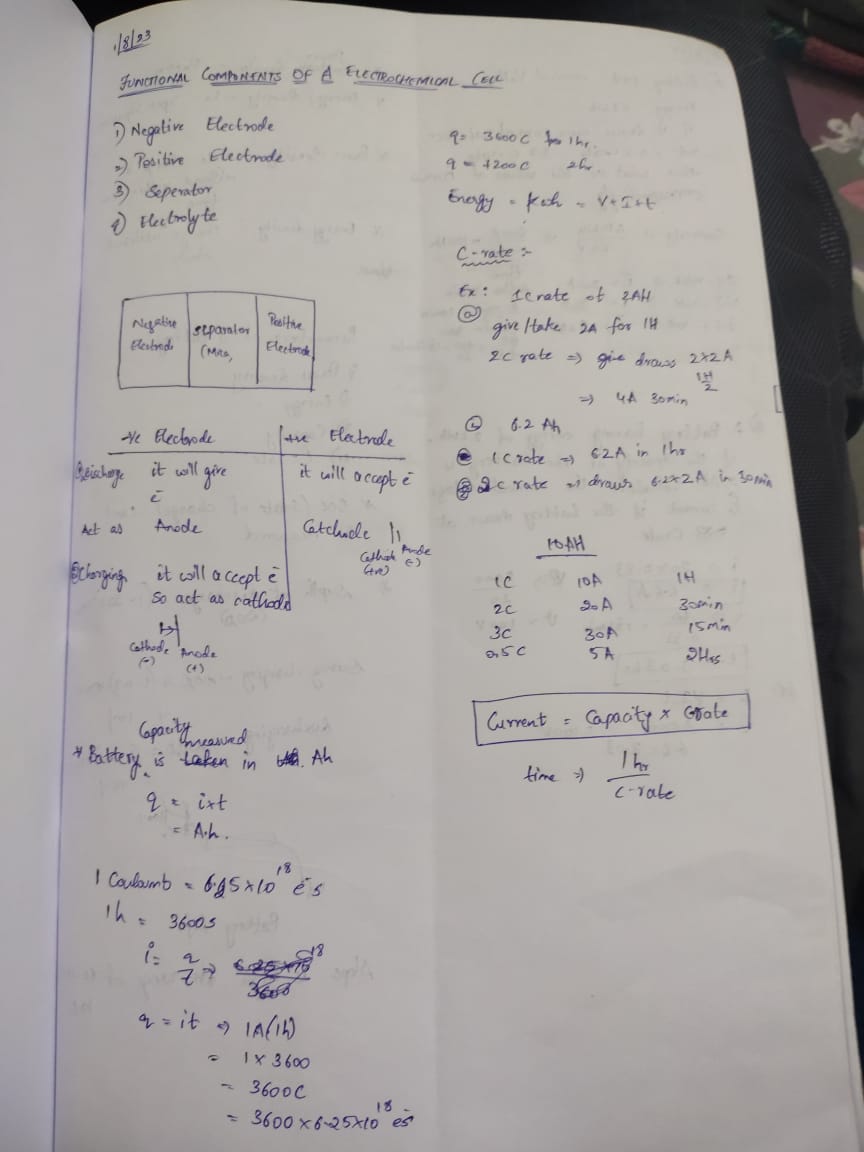 1/8/23
FUNCTIONAL COMPONENTS OF A ELECTROCHEMICAL CELL
1) Negative Electrode
2) Positive Electrode
3) Seperator
4) Electrolyte
Negative Electrode
separator
Positive Electrode
-ve Electrode +ve Electrode
Discharge it will give ē it will accept ē
Act as Anode Catchode
Cathode (+ve) Anode (-)
Charging it will accept ē
so act as cathode
Cathode (-) Anode (+)
* Battery Capacity is measured in Ah
q = i×t
= A.h.
1 Coulomb = 6.25×10^18 ē s
1h = 3600s
i = q/t ⇒
q = it ⇒ 1A(1h)
= 1 × 3600
= 3600C
= 3600×6.25×10^18 ēs
q = 3600C for 1hr.
q = 7200C 2hr
Energy = = V*I*t
C-rate :-
Ex: 1c rate of 2AH
(a) give/take 2A for 1H
2c rate ⇒ draws 2×2A 1H/2
⇒ 4A 30min
6.2 Ah
1c rate ⇒ 6.2A in 1hr
2c rate ⇒ draws 6.2×2A in 30min
10AH
1C 10A 1H
2C 20A 30min
3C 30A 15min
0.5C 5A 2Hrs
Current = Capacity × Crate
time ⇒ 1hr/c-rate